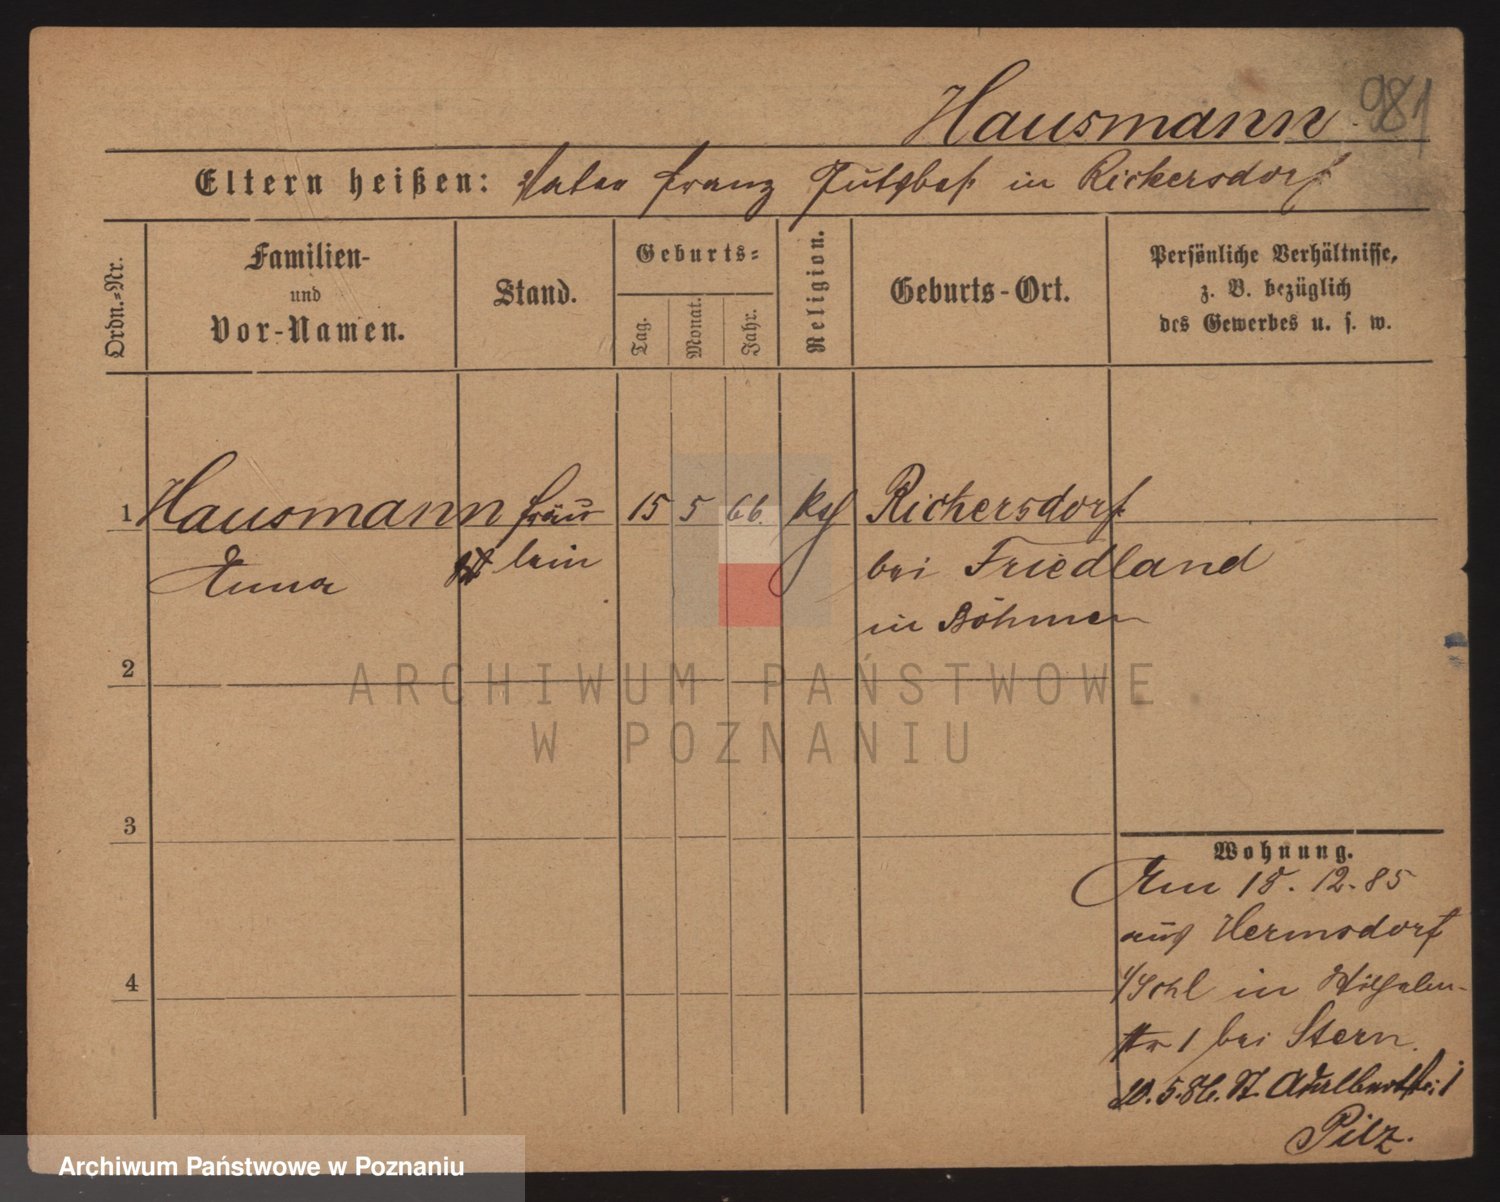 Hausmann 981
Eltern heißen: Vater Franz Gutsbes. in Rickersdorf
Ordn.-Nr.
Familien-
und
Vor-Namen.
Stand.
Geburts-
Tag.
Monat.
Jahr.
Religion.
Geburts-Ort.
Persönliche Verhältnisse,
z. B. bezüglich
des Gewerbes u. s. w.
1 Hausmann Fräu 15 5 66. Rickersdorf
Anna lein bei Friedland
in Böhmen
2
3
4
Wohnung.
Am 15. 12. 85
aus Hermsdorf
in Wilhelm-
str 1 bei Stern.
20. 5. 86. St. Adalbertstr. 1
Pilz.
ARCHIWUM PAŃSTWOWE
W POZNANIU
Archiwum Państwowe w Poznaniu